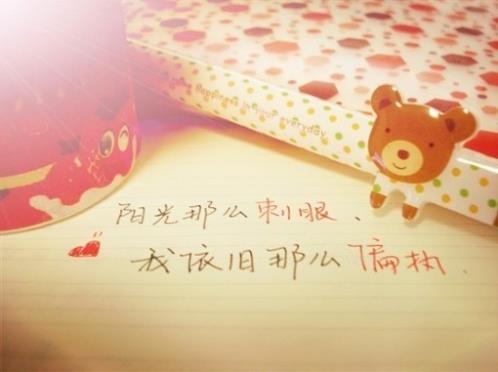 Happiness in your everyday
阳光那么刺眼、
我依旧那么偏执.